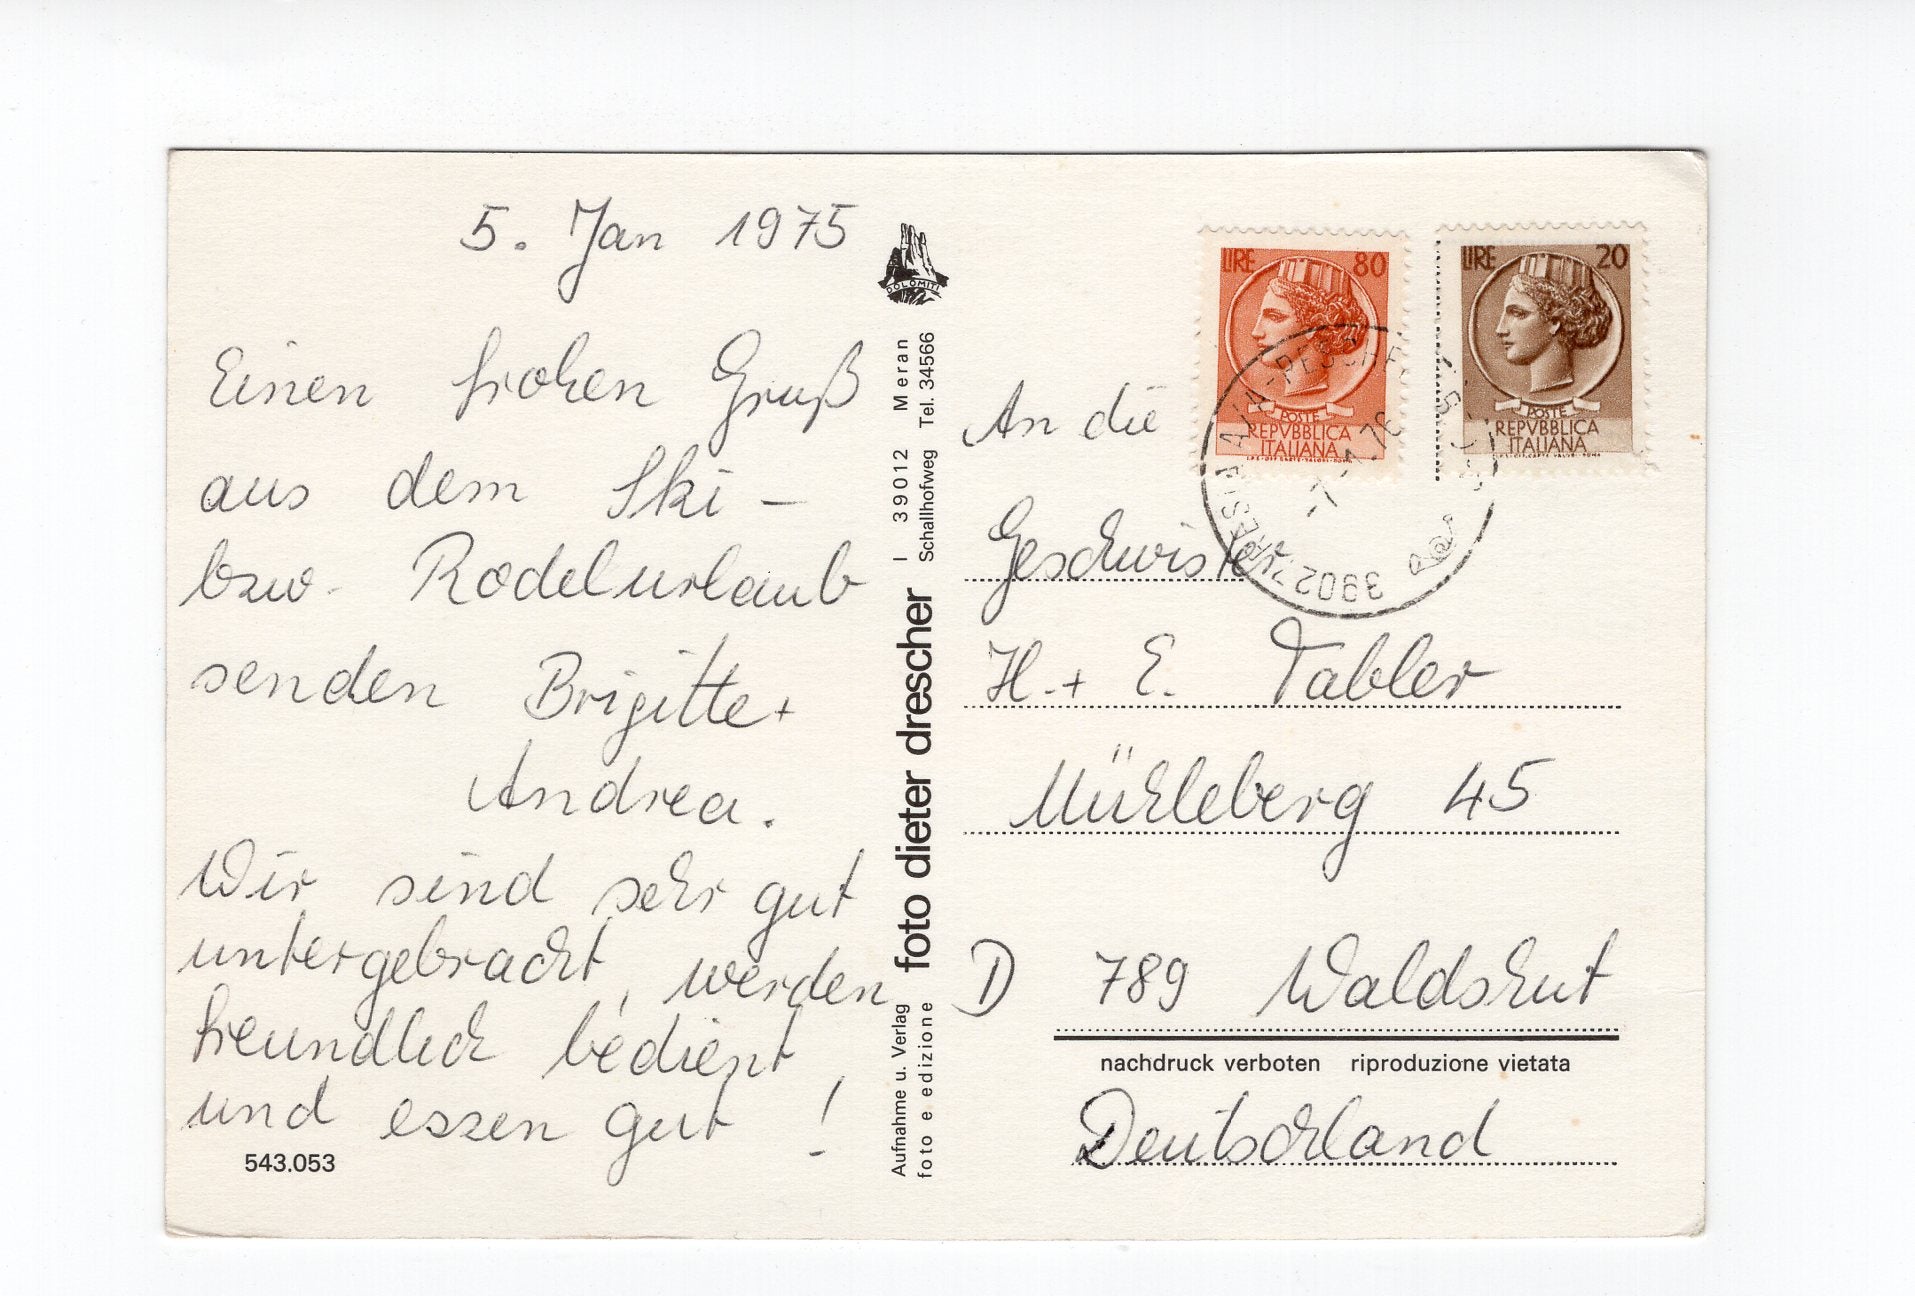 5. Jan 1975
Einen frohen Gruß
aus dem Ski -
bzw. Rodelurlaub
senden Brigitte +
Andrea.
Wir sind sehr gut
untergebracht, werden
freundlich bedient,
und essen gut !
543.053
DOLOMITI
Aufnahme u. Verlag
foto e edizione
foto dieter drescher
I 39012 Meran
Schallhofweg Tel. 34566
LIRE 80
POSTE
REPVBBLICA
ITALIANA
LIRE 20
POSTE
REPVBBLICA
ITALIANA
39027
An die
Geschwister
H. + E. Tabler
Mühleberg 45
D 789 Waldshut
nachdruck verboten riproduzione vietata
Deutschland